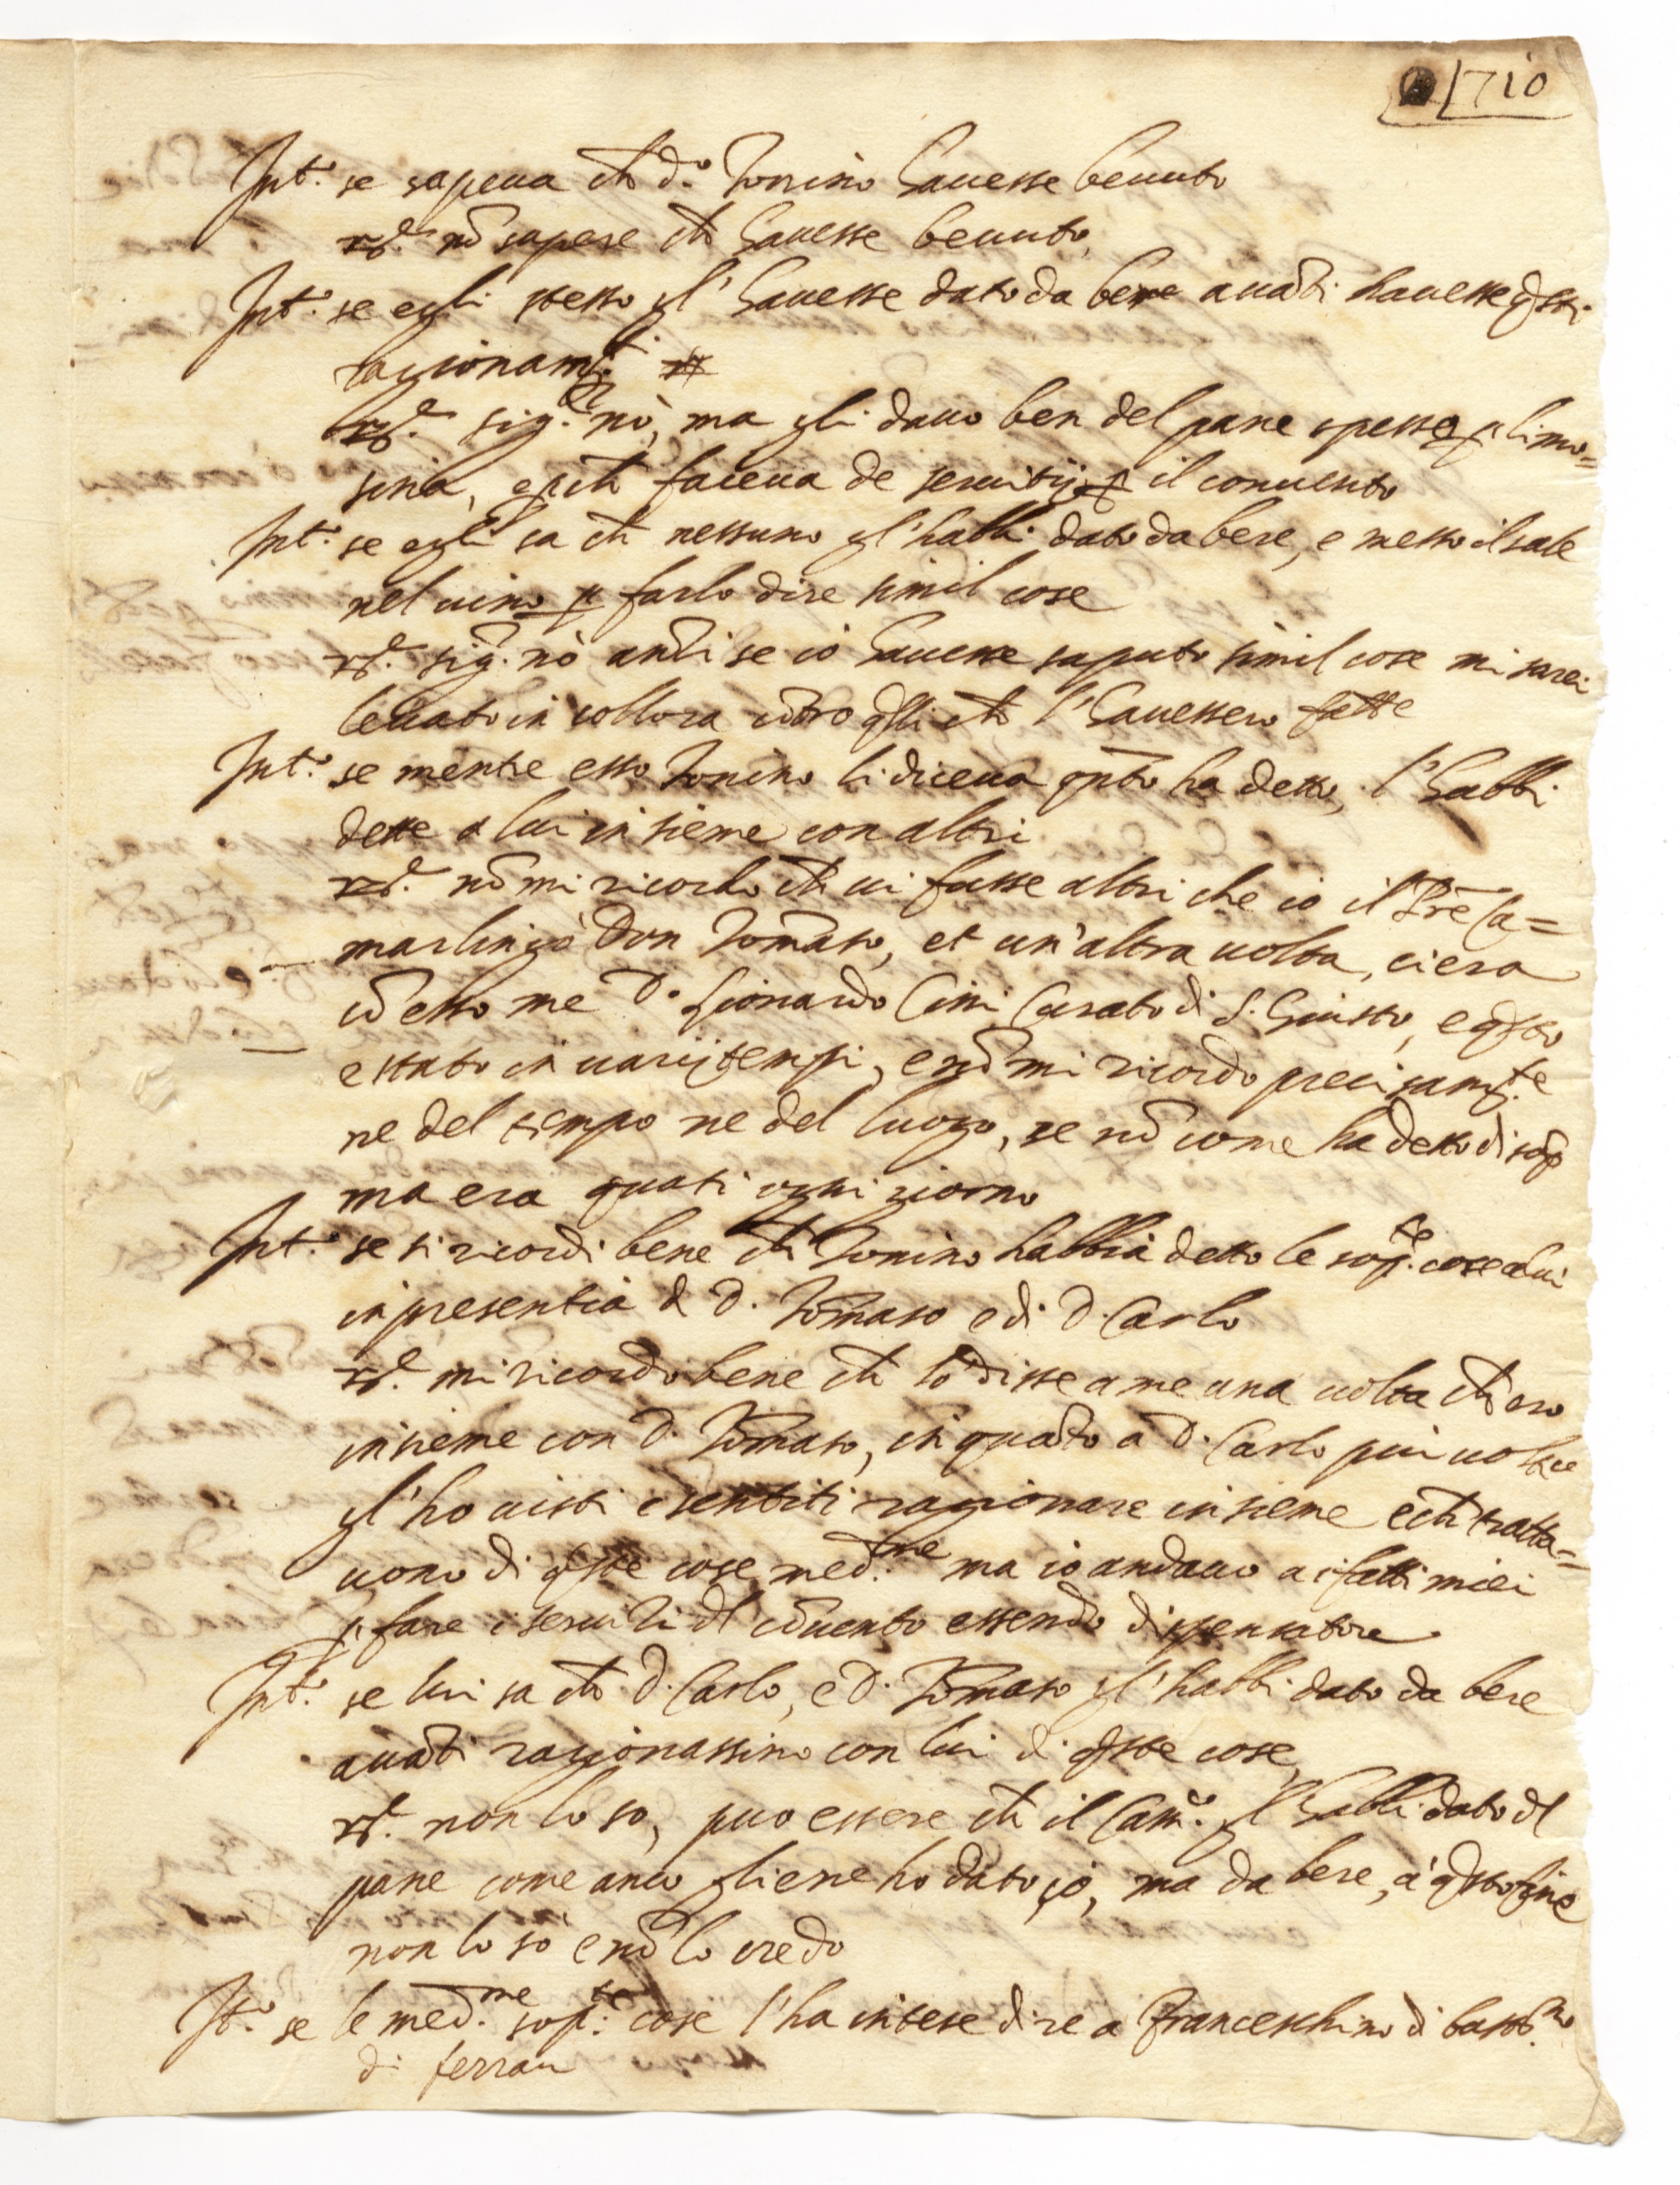 1710
Int.o se sapeua ch d.o Tonino hauesse beuuto
rs.e nō sapere ch hauesse beuuto
Int.o se egli stesso gl'hauesse dato da bere auāti hauesse qsti
ragionam.ti
rs.e sig.re nò, ma gli dauo ben del pane spesso p limo=
sina, e pch faceua de seruitij p il conuento
Int.o se egli sa ch nessuno gl'habbi dato da bere, e messo il sale
nel uino p farlo dire simil cose
rs.e sig.re nò anzi se io hauesse saputo simil cose mi sarei
leuato in collora cōtro qlli ch l'hauessero fatte
Int.o se mentre esso Tonino li diceua qnto ha detto, l'habbi
dette a lui insieme con altri
rs.e nō mi ricordo ch ui fusse altri che io il Pre Ca=
marlingo Don Tomaso, et un'altra uolta, ci era
cō esso me D. Lionardo Cini Curato di S. Giusto, e qsto
e stato in uarij tempi, e nō mi ricordo precisam.te
ne del tempo ne del luogo, se nō come ha detto di sop
ma era quasi ogni giorno
Int.o se si ricordi bene ch Tonino habbia detto le sop.te cose a lui
in presentia d D. Tomaso e di D. Carlo
rs.e mi ricordo bene ch lo disse a me una uolta ch ero
insieme con D. Tomaso, in quāto a D. Carlo piu uolte
gl'ho uisti e sentiti ragionare insieme e ch tratta=
uono di qste cose med.me ma io andauo a i fatti miei
p fare i seruitij dl cōuento essendo dispensatore
Int.o se lui sa ch D. Carlo, e D. Tomaso gl'habbi dato da bere
auāti ragionassino con lui di qste cose
rs.e non lo so, puo essere ch il Cam.o gl'habbi dato dl
pane come anco gliene ho dato io, ma da bere, a qsto fine
non lo so e nō lo credo
Int.o se le med.me sop.te cose l'ha intese dire a Franceschino di bast.no
di ferrau